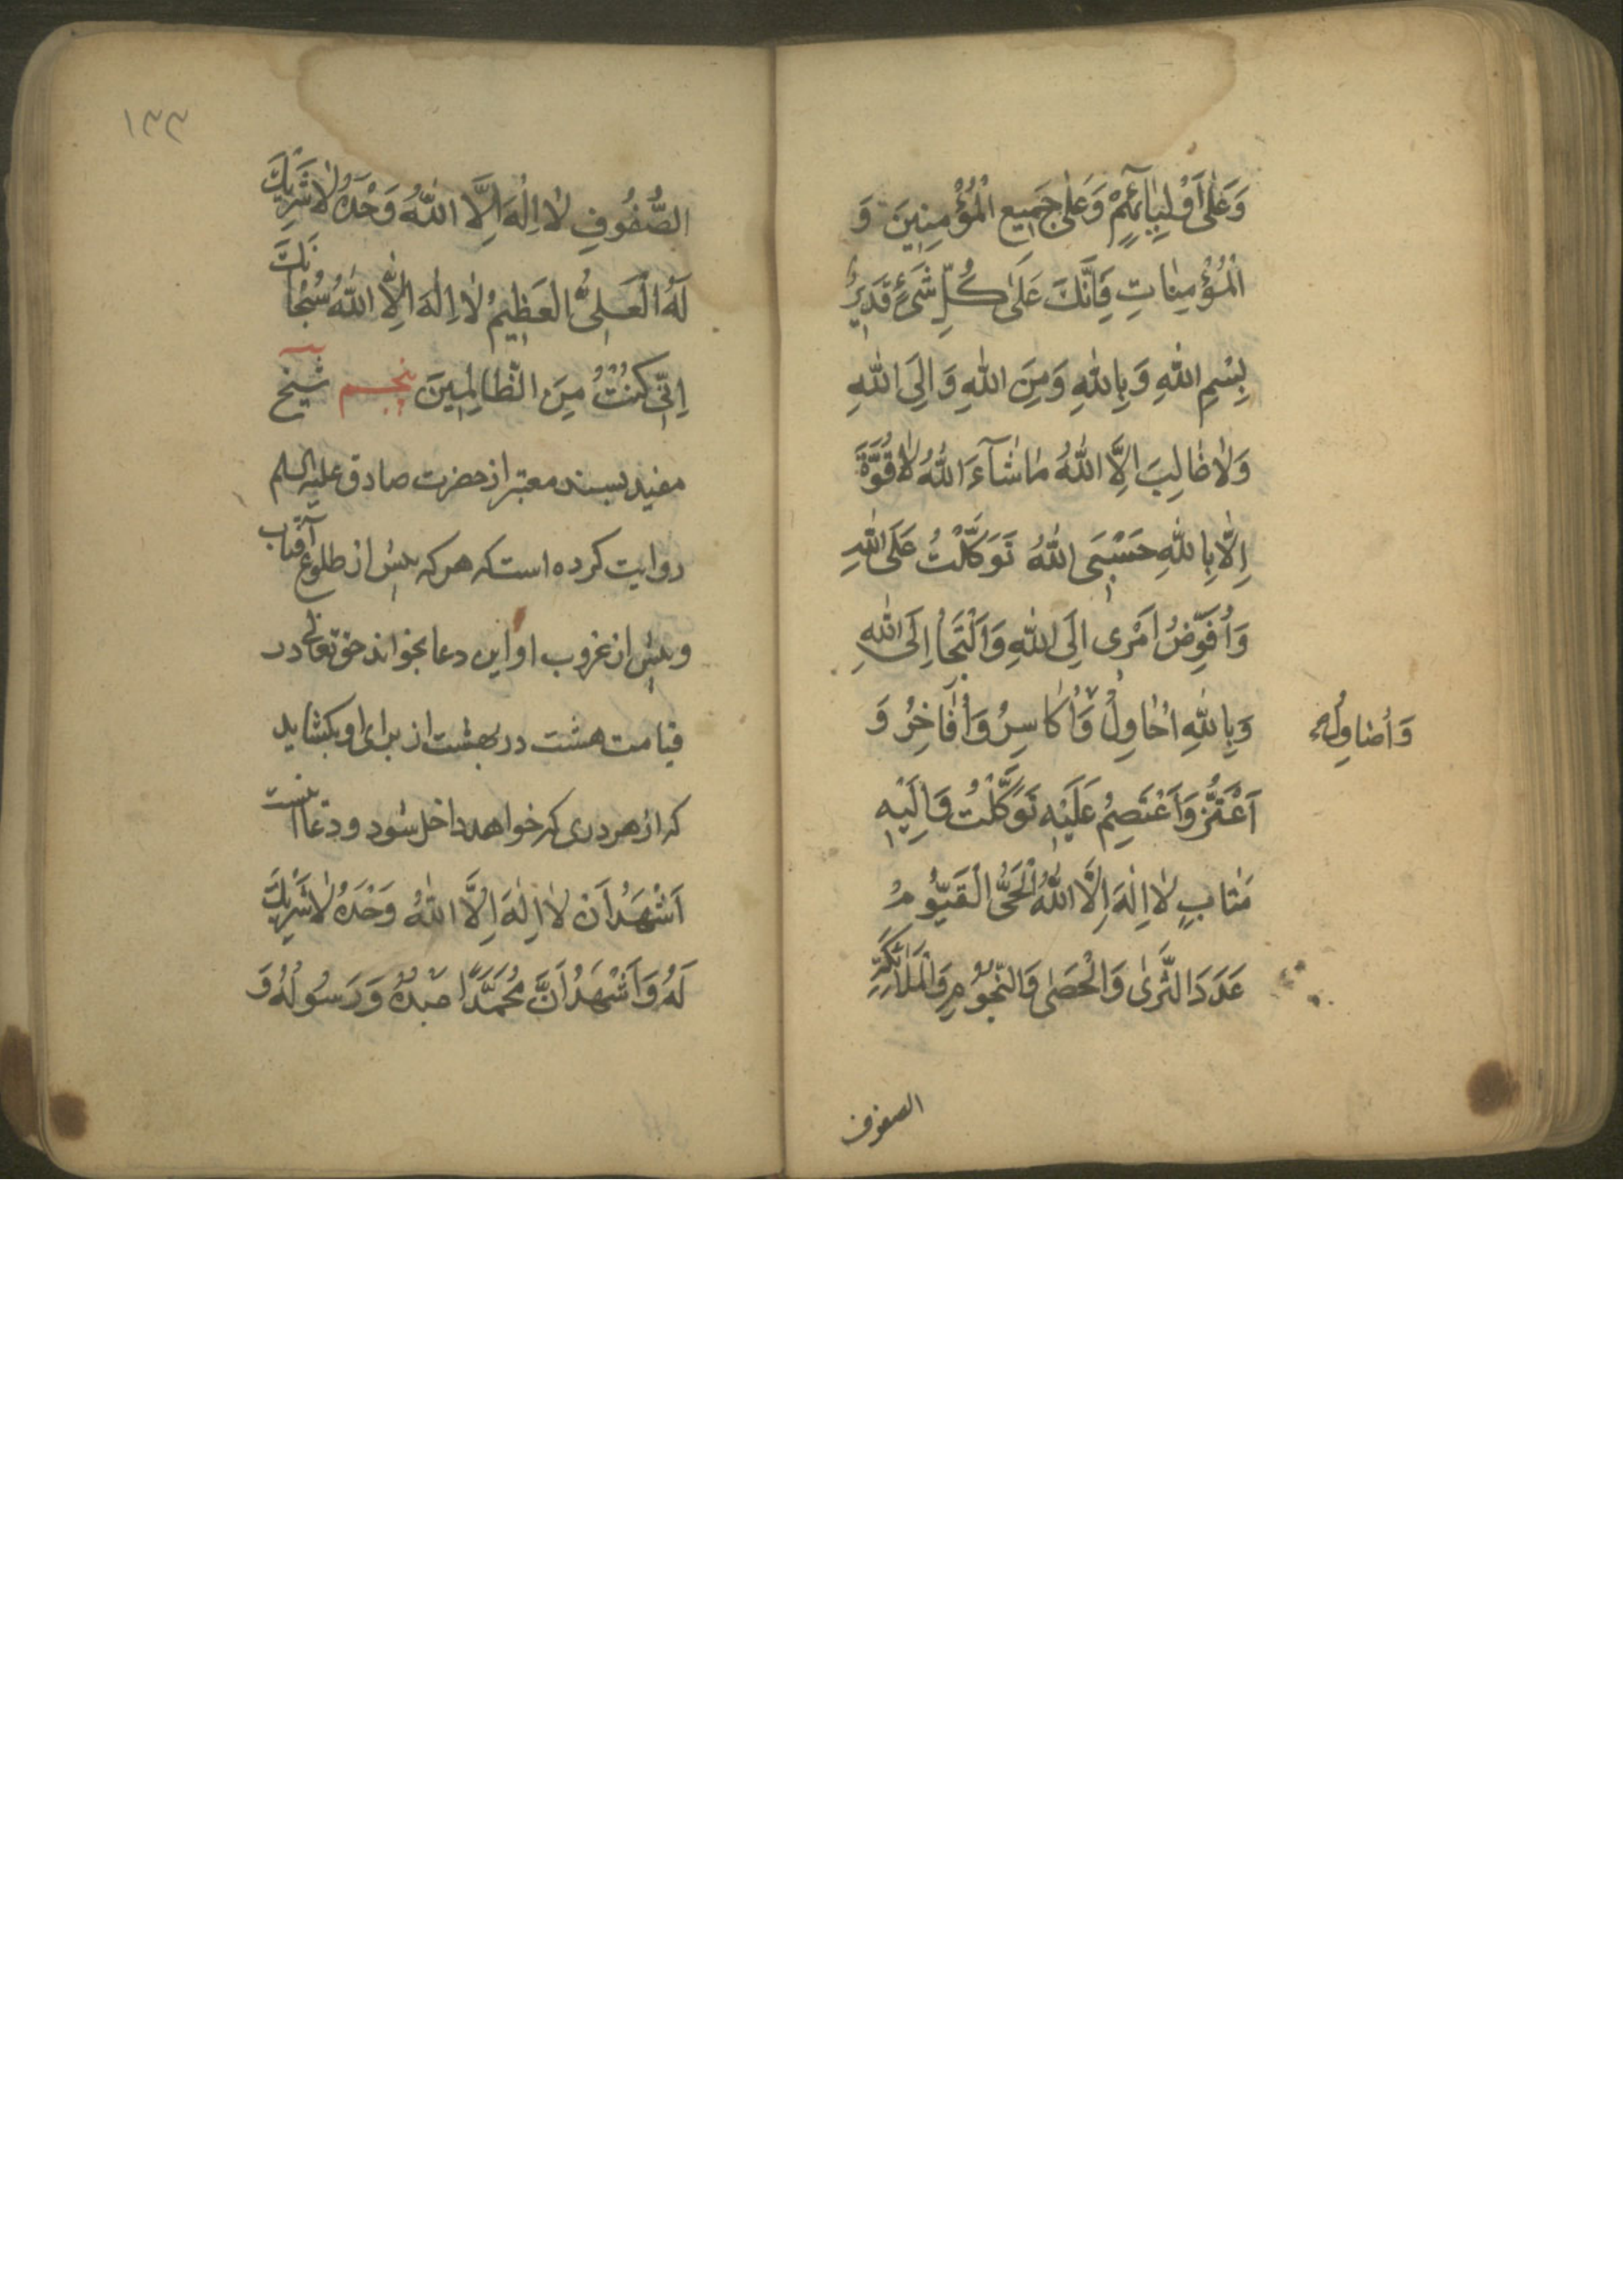 وَعَلٰى اَوْلِيٰائِهِمْ وَعَلٰى جَمِيعِ الْمُؤْمِنِينَ وَ
الْمُؤْمِنٰاتِ فَاِنَّكَ عَلٰى كُلِّ شَىْءٍ قَدِيرٌ
بِسْمِ اللّٰهِ وَبِاللّٰهِ وَمِنَ اللّٰهِ وَاِلَى اللّٰهِ
وَلٰا غٰالِبَ اِلَّا اللّٰهُ مٰا شٰآءَ اللّٰهُ لٰا قُوَّةَ
اِلّٰا بِاللّٰهِ حَسْبِىَ اللّٰهُ تَوَكَّلْتُ عَلَى اللّٰهِ
وَاُفَوِّضُ اَمْرى اِلَى اللّٰهِ وَاَلْتَجَأُ اِلَى اللّٰهِ
وَبِاللّٰهِ اُحٰاوِلُ وَاُكٰاسِرُ وَاُفٰاخِرُ وَ
وَاُصٰاوِلُ
اَعْتَزُّ وَاَعْتَصِمُ عَلَيْهِ تَوَكَّلْتُ وَاِلَيْهِ
مَتٰابِ لٰا اِلٰهَ اِلَّا اللّٰهُ الْحَىُّ الْقَيُّومُ
عَدَدَ الثَّرىٰ وَالْحَصٰى وَالنُّجُومِ وَالْمَلٰائِكَةِ
الصفوف
١٣٣
الصُّفُوفِ لٰا اِلٰهَ اِلَّا اللّٰهُ وَحْدَهُ لٰا شَرِيكَ
لَهُ الْعَلِىُّ الْعَظِيمُ لٰا اِلٰهَ اِلَّا اللّٰهُ سُبْحٰانَكَ
اِنّى كُنْتُ مِنَ الظّٰالِمِينَ پنجم شيخ
مفيد بسند معتبر از حضرت صادق عليه السلم
روايت كرده است كه هر كه پيش از طلوع آفتاب
و پيش از غروب او اين دعا بخواند حق تعالى در
قيامت هشت در بهشت از براى او بكشايد
كه از هر درى كه خواهد داخل شود و دعا اينست
اَشْهَدُ اَنْ لٰا اِلٰهَ اِلَّا اللّٰهُ وَحْدَهُ لٰا شَرِيكَ
لَهُ وَاَشْهَدُ اَنَّ مُحَمَّدًا عَبْدُهُ وَرَسُولُهُ وَ